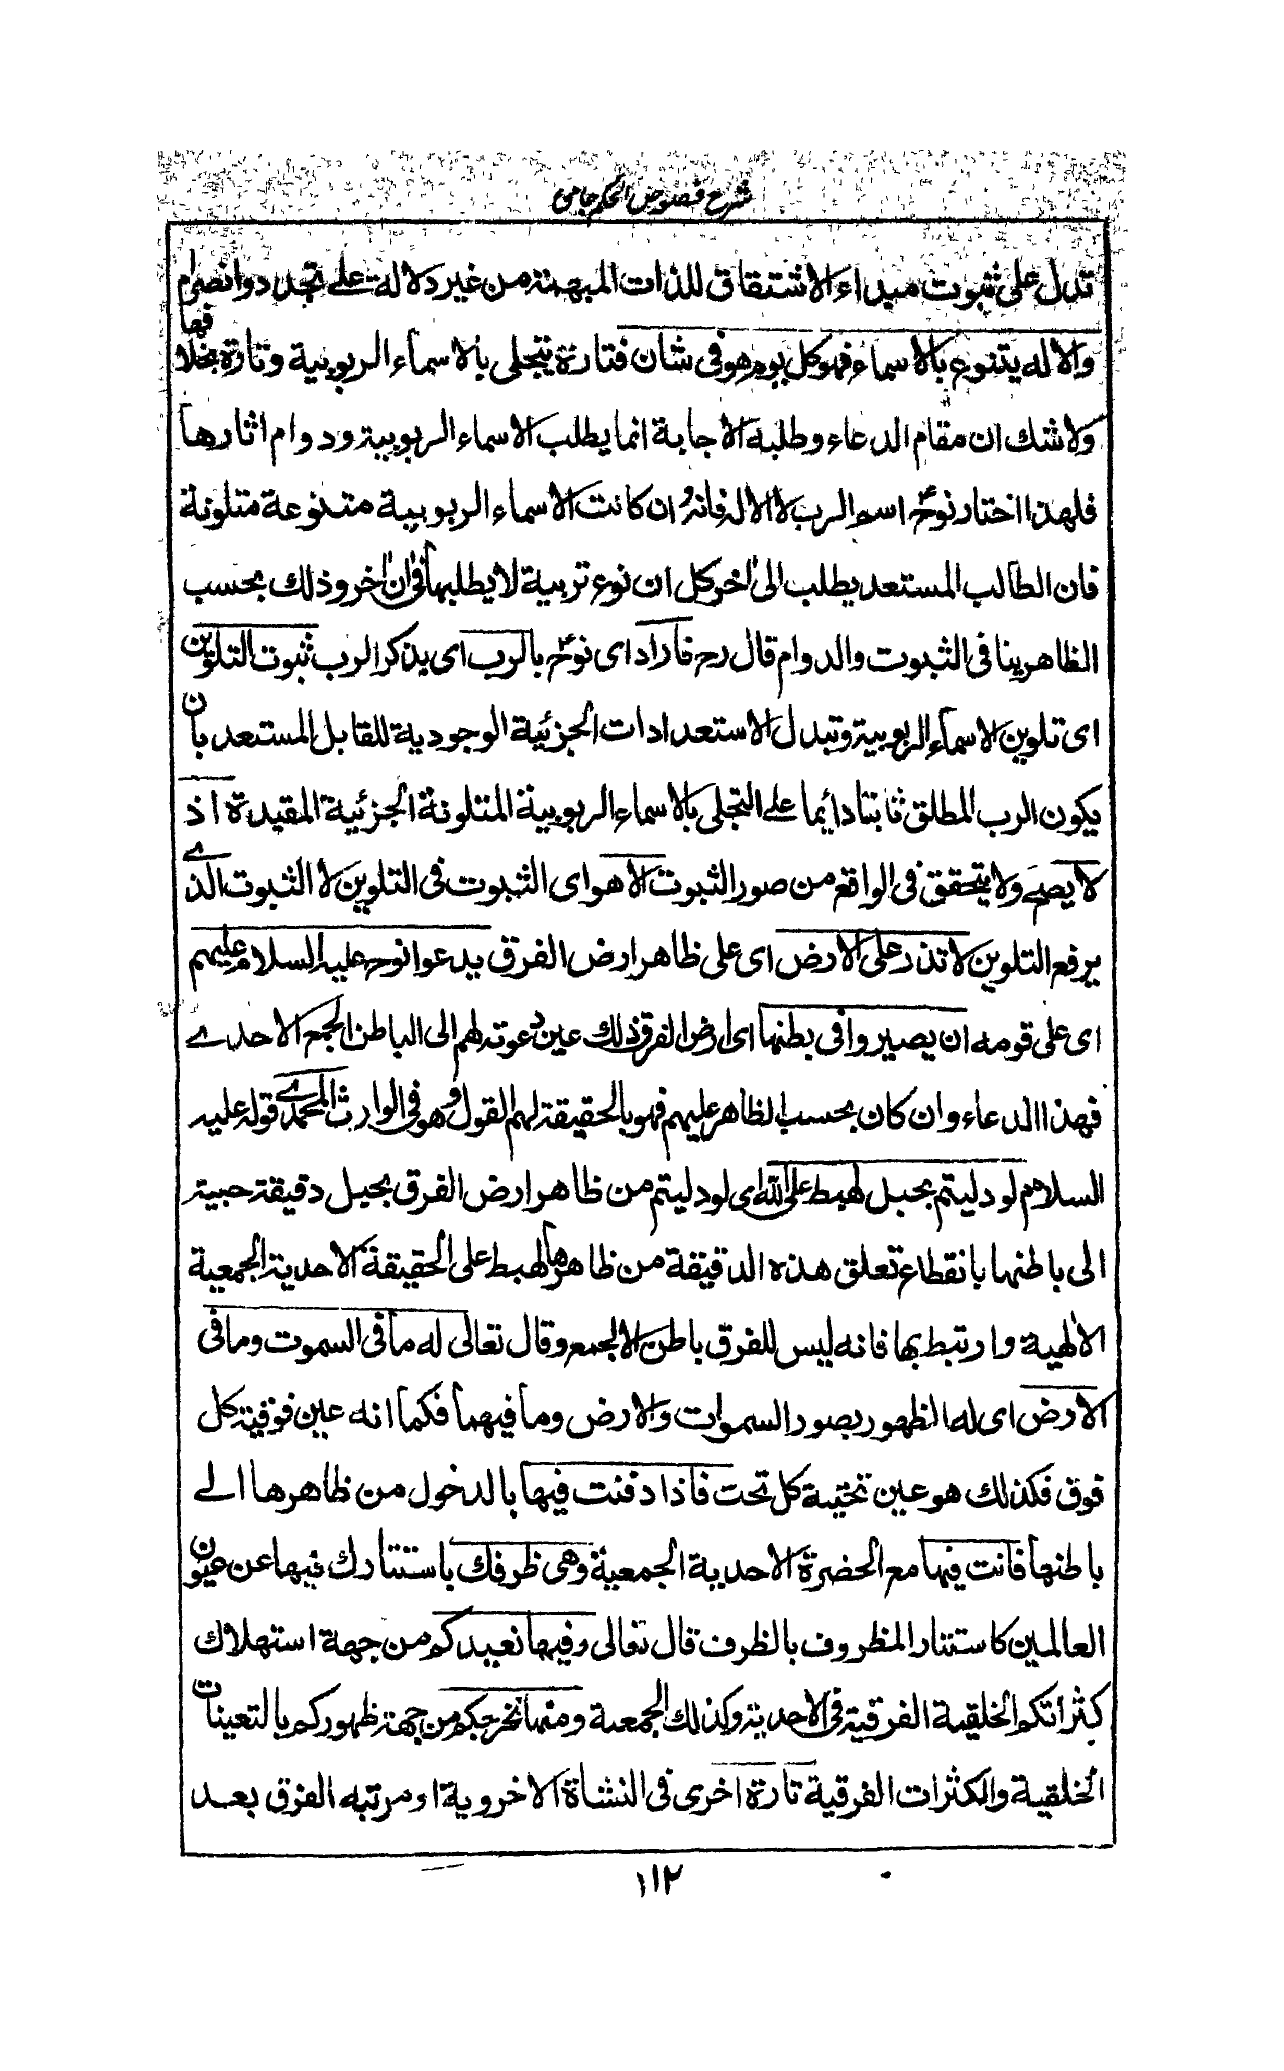 شرح فصوص الحكم جامى
تدل على ثبوت مبداء الاشتقاق للذات المبهمة من غير دلالة على تجدد وانصرام
والاله يتنوع بالاسماء فهو كل يوم هو فى شان فتارة يتجلى بالاسماء الربوبية وتارة بخلافها
ولا شك ان مقام الدعاء وطلبه الاجابة انما يطلب الاسماء الربوبية ودوام اثارها
فلهذا اختار نوحؑ اسم الرب لا الاله فانه وان كانت الاسماء الربوبية متنوعة متلونة
فان الطالب المستعد يطلب الى اخر كل ان نوع تربية لا يطلبها فى ان اخر وذلك بحسب
الظاهر ينافى الثبوت والدوام قال رح فاراد اى نوحؑ بالرب اى بذكر الرب ثبوت التلوين
اى تلوين الاسماء الربوبية وتبدل الاستعدادات الجزئية الوجودية للقابل المستعد بان
يكون الرب المطلق ثابتا دائما على التجلى بالاسماء الربوبية المتلونة الجزئية المقيدة اذ
لا يصح ولا يتحقق فى الواقع من صور الثبوت الا هو اى الثبوت فى التلوين لا الثبوت الذى
يرفع التلوين لا تذر على الارض اى على ظاهر ارض الفرق يدعوا نوح عليه السلام عليهم
اى على قومه ان يصيروا فى بطنها اى ارض الفرق وذلك عين دعوته لهم الى الباطن الجمع الاحدى
فهذا الدعاء وان كان بحسب الظاهر عليهم فهو بالحقيقة لهم القول وهو فى الوارث المحمدى قوله عليه
السلام لو دليتم بحبل لهبط على الله اى لو دليتم من ظاهر ارض الفرق بحبل دقيقة حبية
الى باطنها بانقطاع تعلق هذه الدقيقة من ظاهرها لهبط على الحقيقة الاحدية الجمعية
الالهية وارتبط بها فانه ليس للفرق باطن الا الجمع وقال تعالى له ما فى السموت وما فى
الارض اى له الظهور بصور السموات والارض وما فيهما فكما انه عين فوقية كل
فوق فكذلك هو عين تحتية كل تحت فاذا دفنت فيها بالدخول من ظاهرها الى
باطنها فانت فيها مع الحضرة الاحدية الجمعية وهى ظرفك باستتارك فيها عن عيون
العالمين كاستتار المظروف بالظرف قال تعالى وفيها نعيدكم من جهة استهلاك
كثراتكم الخلقية الفرقية فى الاحدية وكذلك الجمعية ومنها نخرجكم من جهة ظهوركم بالتعينات
الخلقية والكثرات الفرقية تارة اخرى فى النشاة الاخروية او مرتبه الفرق بعد
١١٢